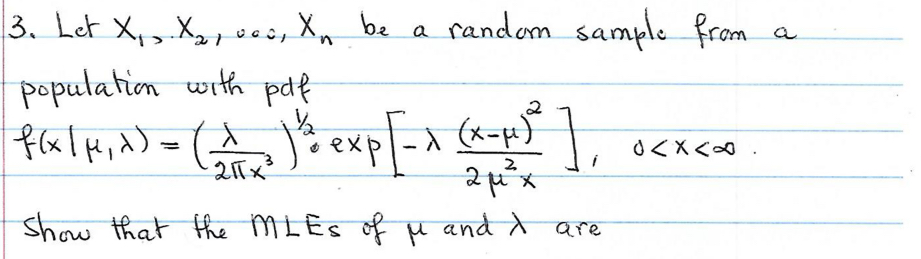 3. Let X₁, X₂, ..., Xₙ be a random sample from a
population with pdf
f(x|μ,λ) = (λ/2πx³)^½ · exp[-λ (x-μ)²/2μ²x], 0<x<∞.
Show that the MLEs of μ and λ are